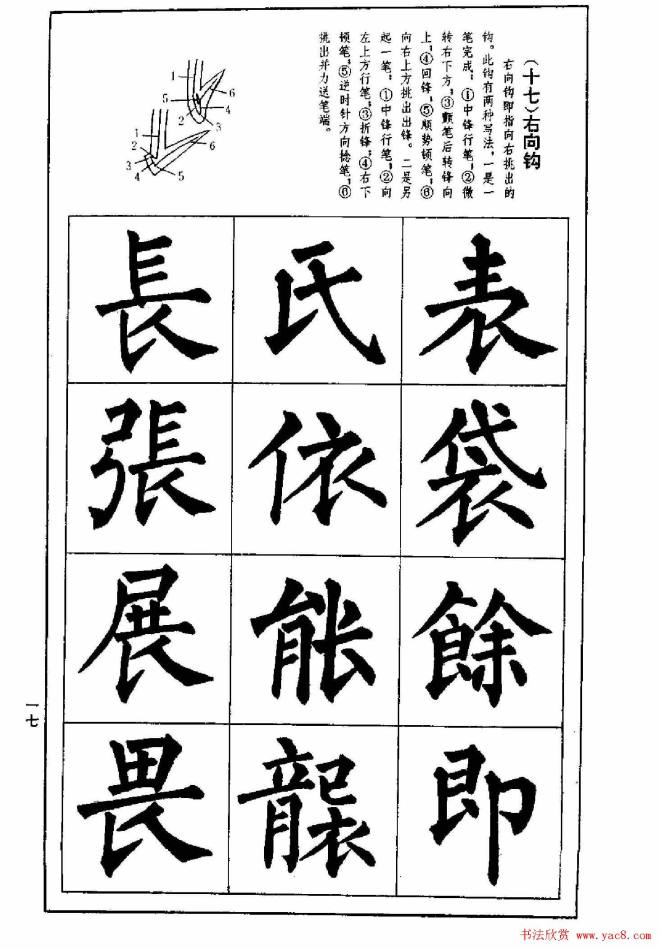 (十七)右向钩
右向钩即指向右挑出的
钩。此钩有两种写法,一是一
笔完成:①中锋行笔;②微
转右下方;③颤笔后转锋向
上;④回锋;⑤顺势顿笔;⑥
向右上方挑出出锋。二是另
起一笔:①中锋行笔;②向
左上方行笔;③折锋;④右下
顿笔;⑤逆时针方向捻笔;⑥
挑出并力送笔端。
1
6
5
4
2
3
1
2
6
3
4
5
表
袋
餘
即
氏
依
能
襲
長
張
展
畏
一七
书法欣赏 www.yac8.com